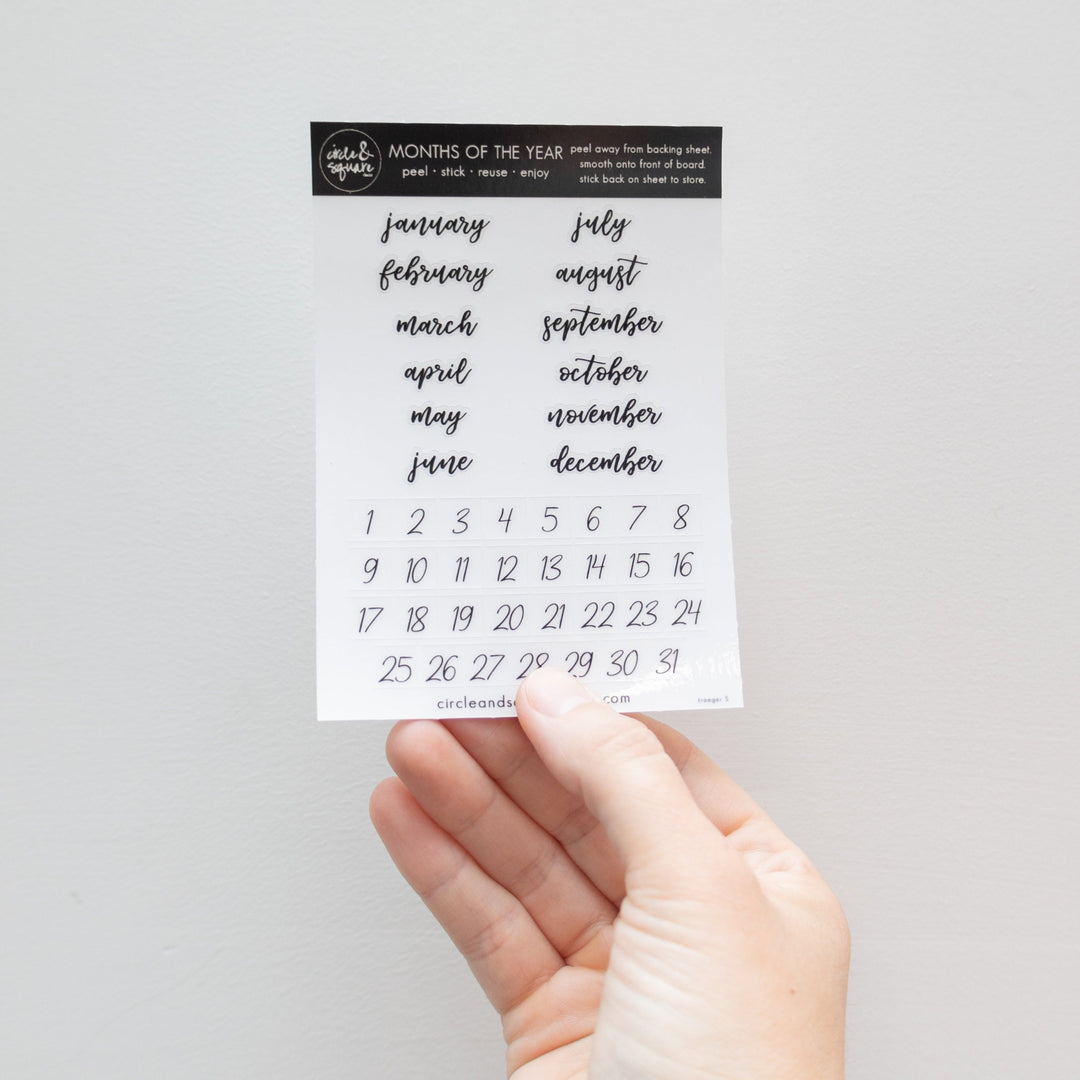 circle &
square
MONTHS OF THE YEAR
peel · stick · reuse · enjoy
peel away from backing sheet.
smooth onto front of board.
stick back on sheet to store.
january
february
march
april
may
june
july
august
september
october
november
december
1 2 3 4 5 6 7 8
9 10 11 12 13 14 15 16
17 18 19 20 21 22 23 24
25 26 27 28 29 30 31
.com